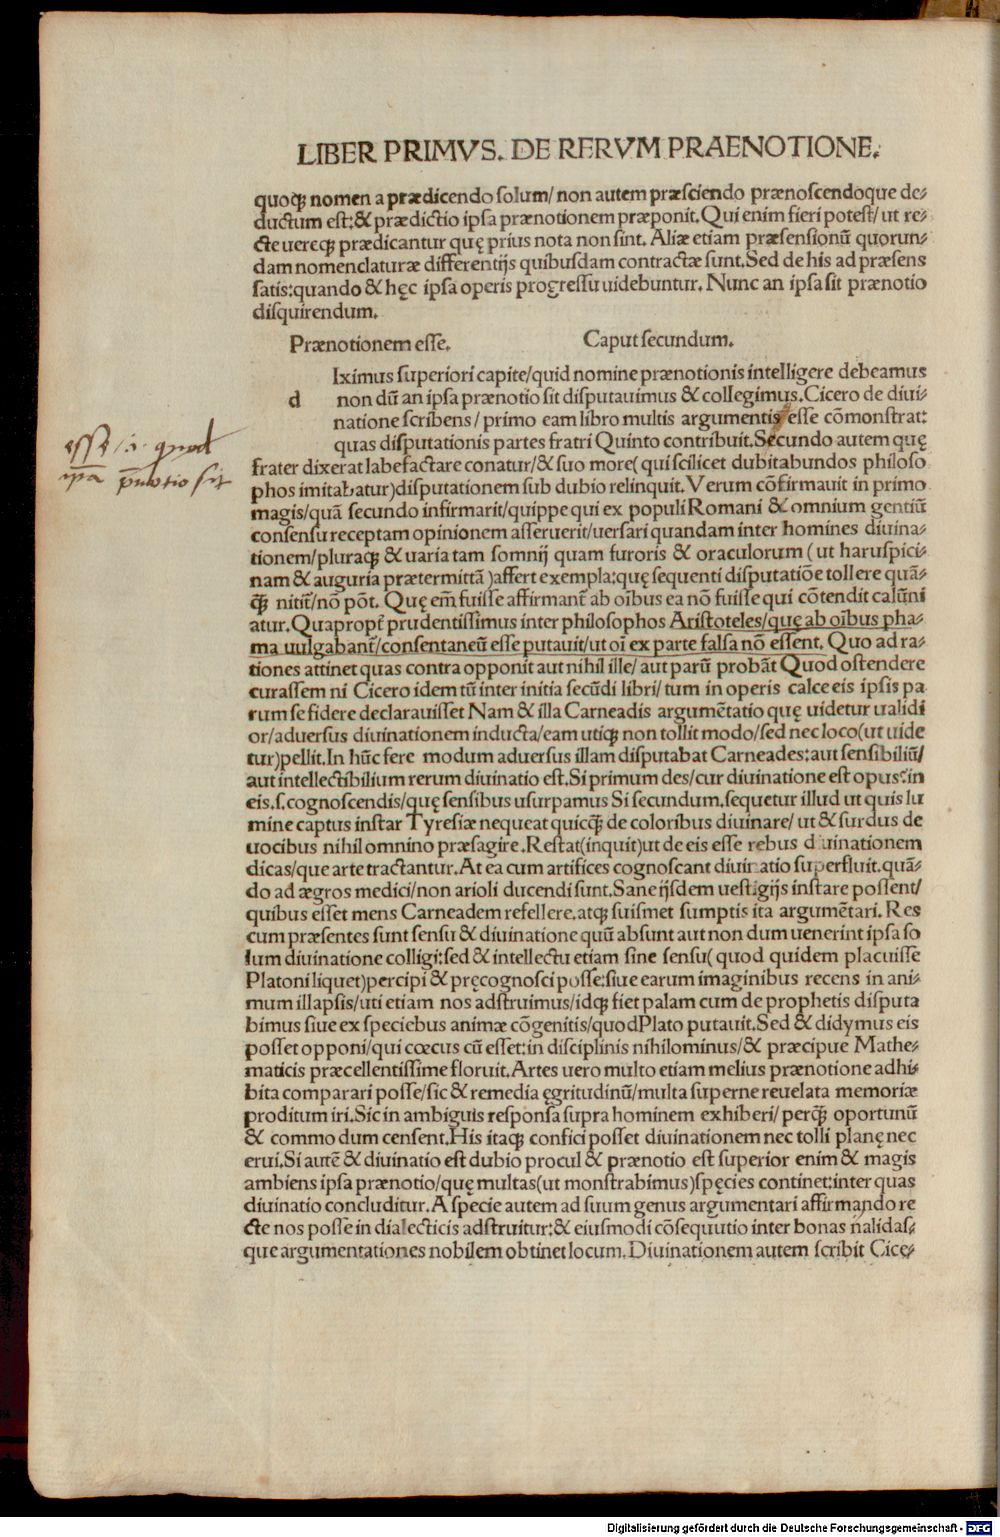 LIBER PRIMVS. DE RERVM PRAENOTIONE.
quoqꝫ nomen a prædicendo solum/ non autem præsciendo prænoscendoque de⸗
ductum est:& prædictio ipsa prænotionem præponit. Qui enim fieri potest/ ut re⸗
cte uereqꝫ prædicantur quę prius nota non sint. Aliæ etiam præsensionũ quorun⸗
dam nomenclaturæ differentijs quibusdam contractæ sunt. Sed de his ad præsens
satis:quando & hęc ipsa operis progressu uidebuntur. Nunc an ipsa sit prænotio
disquirendum.
Prænotionem esse. Caput secundum.
d Iximus superiori capite/quid nomine prænotionis intelligere debeamus
non dũ an ipsa prænotio sit disputauimus & collegimus. Cicero de diui⸗
natione scribens/ primo eam libro multis argumentis esse cõmonstrat:
quas disputationis partes fratri Quinto contribuit. Secundo autem quę
esse .i. quod
ipa p̃notio sit
frater dixerat labefactare conatur/& suo more( qui scilicet dubitabundos philoso
phos imitabatur)disputationem sub dubio relinquit. Verum cõfirmauit in primo
magis/quã secundo infirmarit/quippe qui ex populi Romani & omnium gentiũ
consensu receptam opinionem asseruerit/uersari quandam inter homines diuina⸗
tionem/pluraqꝫ & uaria tam somnij quam furoris & oraculorum ( ut haruspici⸗
nam & auguria prætermittã )affert exempla:quę sequenti disputatiõe tollere quã⸗
qꝫ̃ nitit̃/nõ põt. Quę em̃ fuisse affirmant̃ ab oĩbus ea nõ fuisse qui cõtendit calũni
atur. Quapropt̃ prudentissimus inter philosophos Aristoteles/quę ab oĩbus pha⸗
ma uulgabant̃/consentaneũ esse putauit/ut oĩ ex parte falsa nõ essent. Quo ad ra⸗
tiones attinet quas contra opponit aut nihil ille/ aut parũ probãt Quod ostendere
curassem ni Cicero idem tũ inter initia secũdi libri/ tum in operis calce eis ipsis pa
rum se fidere declarauisset Nam & illa Carneadis argumẽtatio quę uidetur ualidi
or/aduersus diuinationem inducta/eam utiqꝫ non tollit modo/sed nec loco(ut uide
tur)pellit. In hũc fere modum aduersus illam disputabat Carneades:aut sensibiliũ/
aut intellectibilium rerum diuinatio est. Si primum des/cur diuinatione est opus:in
eis.s.cognoscendis/quę sensibus usurpamus Si secundum.sequetur illud ut quis lu
mine captus instar Tyresiæ nequeat quicqꝫ̃ de coloribus diuinare/ ut & surdus de
uocibus nihil omnino præsagire. Restat(inquit)ut de eis esse rebus diuinationem
dicas/que arte tractantur. At ea cum artifices cognoscant diuinatio superfluit.quã⸗
do ad ægros medici/non arioli ducendi sunt. Sane ijsdem uestigijs instare possent/
quibus esset mens Carneadem refellere.atqꝫ suismet sumptis ita argumẽtari. Res
cum præsentes sunt sensu & diuinatione quũ absunt aut non dum uenerint ipsa so
lum diuinatione colligi:sed & intellectu etiam sine sensu( quod quidem placuisse
Platoni liquet)percipi & pręcognosci posse:siue earum imaginibus recens in ani⸗
mum illapsis/uti etiam nos adstruimus/idqꝫ fiet palam cum de prophetis disputa
bimus siue ex speciebus animæ cõgenitis/quod Plato putauit. Sed & didymus eis
posset opponi/qui cœcus cũ esset:in disciplinis nihilominus/& præcipue Mathe⸗
maticis præcellentissime floruit. Artes uero multo etiam melius prænotione adhi⸗
bita comparari posse/sic & remedia ęgritudinũ/multa superne reuelata memoriæ
proditum iri. Sic in ambiguis responsa supra hominem exhiberi/ perqꝫ̃ oportunũ
& commodum censent. His itaqꝫ confici posset diuinationem nec tolli planę nec
erui. Si autẽ & diuinatio est dubio procul & prænotio est superior enim & magis
ambiens ipsa prænotio/quę multas(ut monstrabimus)spęcies continet:inter quas
diuinatio concluditur. A specie autem ad suum genus argumentari affirmando re
cte nos posse in dialecticis adstruitur:& eiusmodi cõsequutio inter bonas ñalidas⸗
que argumentationes nobilem obtinet locum. Diuinationem autem scribit Cice⸗
Digitalisierung gefördert durch die Deutsche Forschungsgemeinschaft - DFG